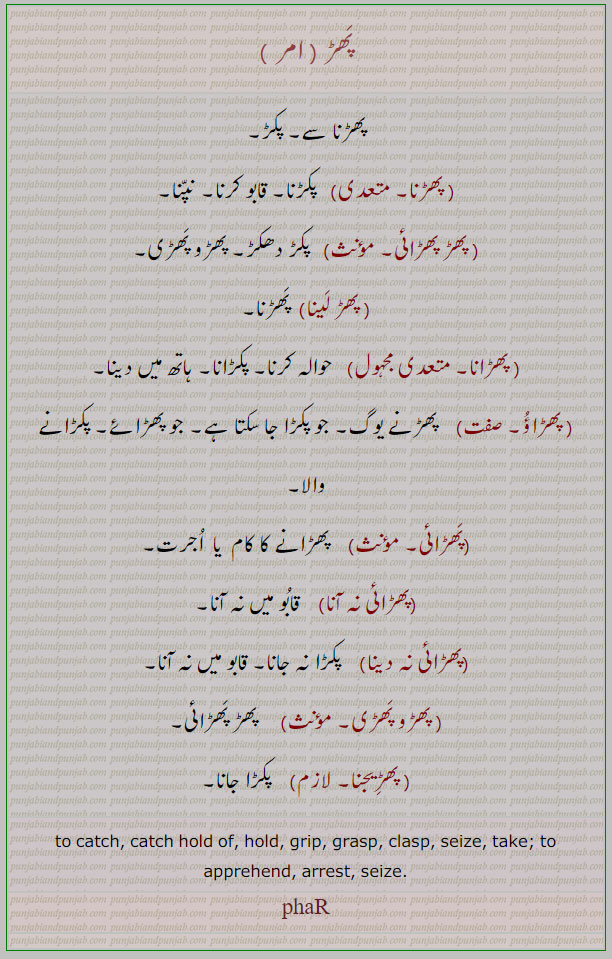 پَھڑ ( امر )
پھڑنا سے۔ پکڑ۔
( پھڑنا۔ متعدی) پکڑنا۔ قابو کرنا۔ نپّنا۔
( پھڑ پھڑائی۔ مؤنث) پکڑ دھکڑ۔ پھڑو پَھڑی۔
( پھڑ لَینا) پَھڑنا۔
( پھڑانا۔ متعدی مجہول) حوالہ کرنا۔ پکڑانا۔ ہاتھ میں دینا۔
( پھڑاؤُ۔ صفت) پھڑنے یوگ۔ جو پکڑا جا سکتا ہے۔ جو پھڑائے۔ پکڑانے
والا۔
(پَھڑائی۔ مؤنث) پھڑانے کا کام یا اُجرت۔
(پھڑائی نہ آنا) قابُو میں نہ آنا۔
(پھڑائی نہ دینا) پکڑا نہ جانا۔ قابو میں نہ آنا۔
( پھڑو پَھڑی۔ مؤنث) پھڑ پَھڑائی۔
( پھڑِیجنا۔ لازم) پکڑا جانا۔
to catch, catch hold of, hold, grip, grasp, clasp, seize, take; to
apprehend, arrest, seize.
phaR